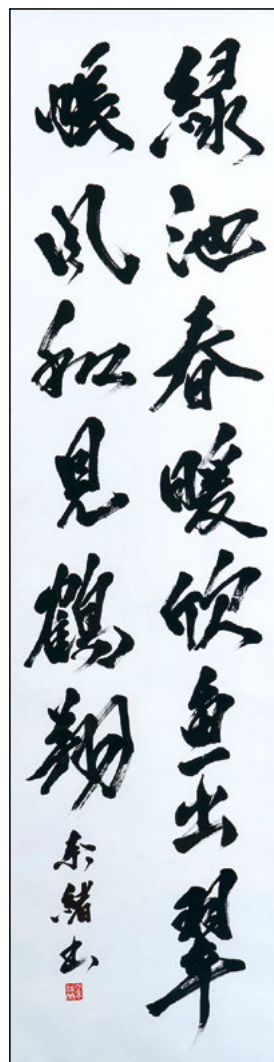 綠池春暖欣魚出翠
幄風和見鶴翔